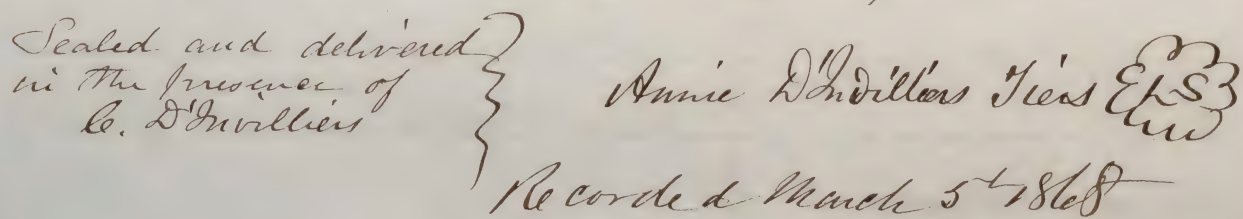 Sealed and delivered
in the presence of
C. D'Invilliers
Annie D'Invilliers Tiers LS
Recorded March 5th 1868